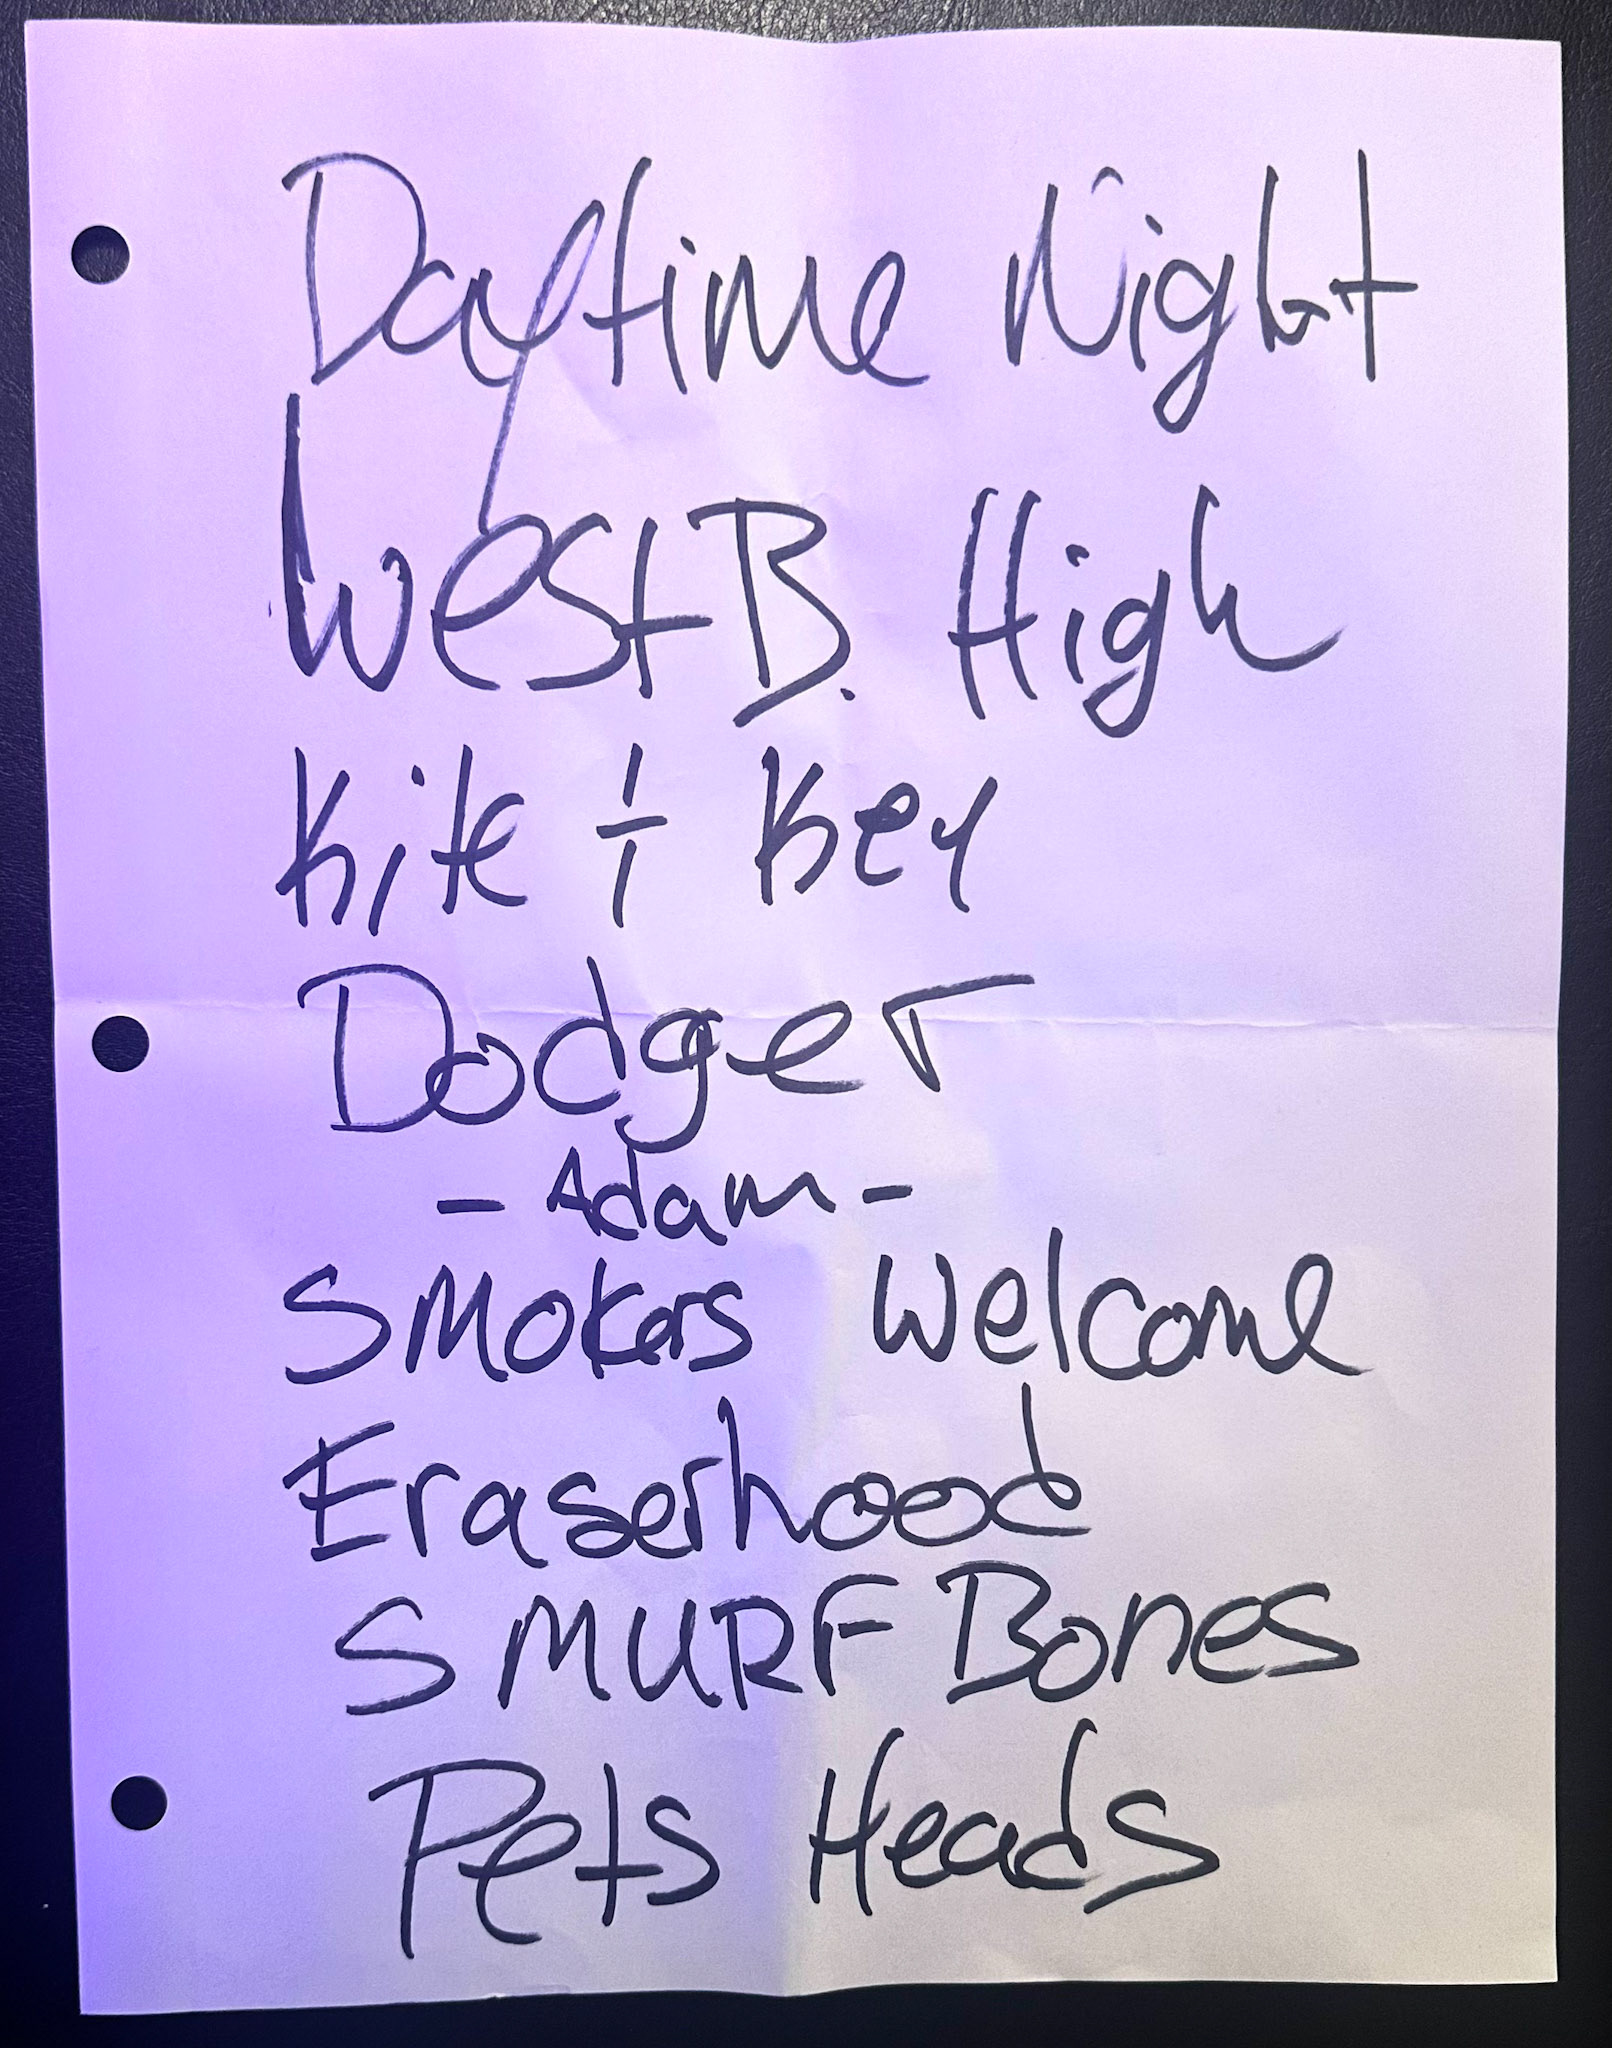 Daytime Night
West B. High
Kite + Key
Dodger
- Adam -
Smokers Welcome
Eraserhood
SMURF Bones
Pets Heads